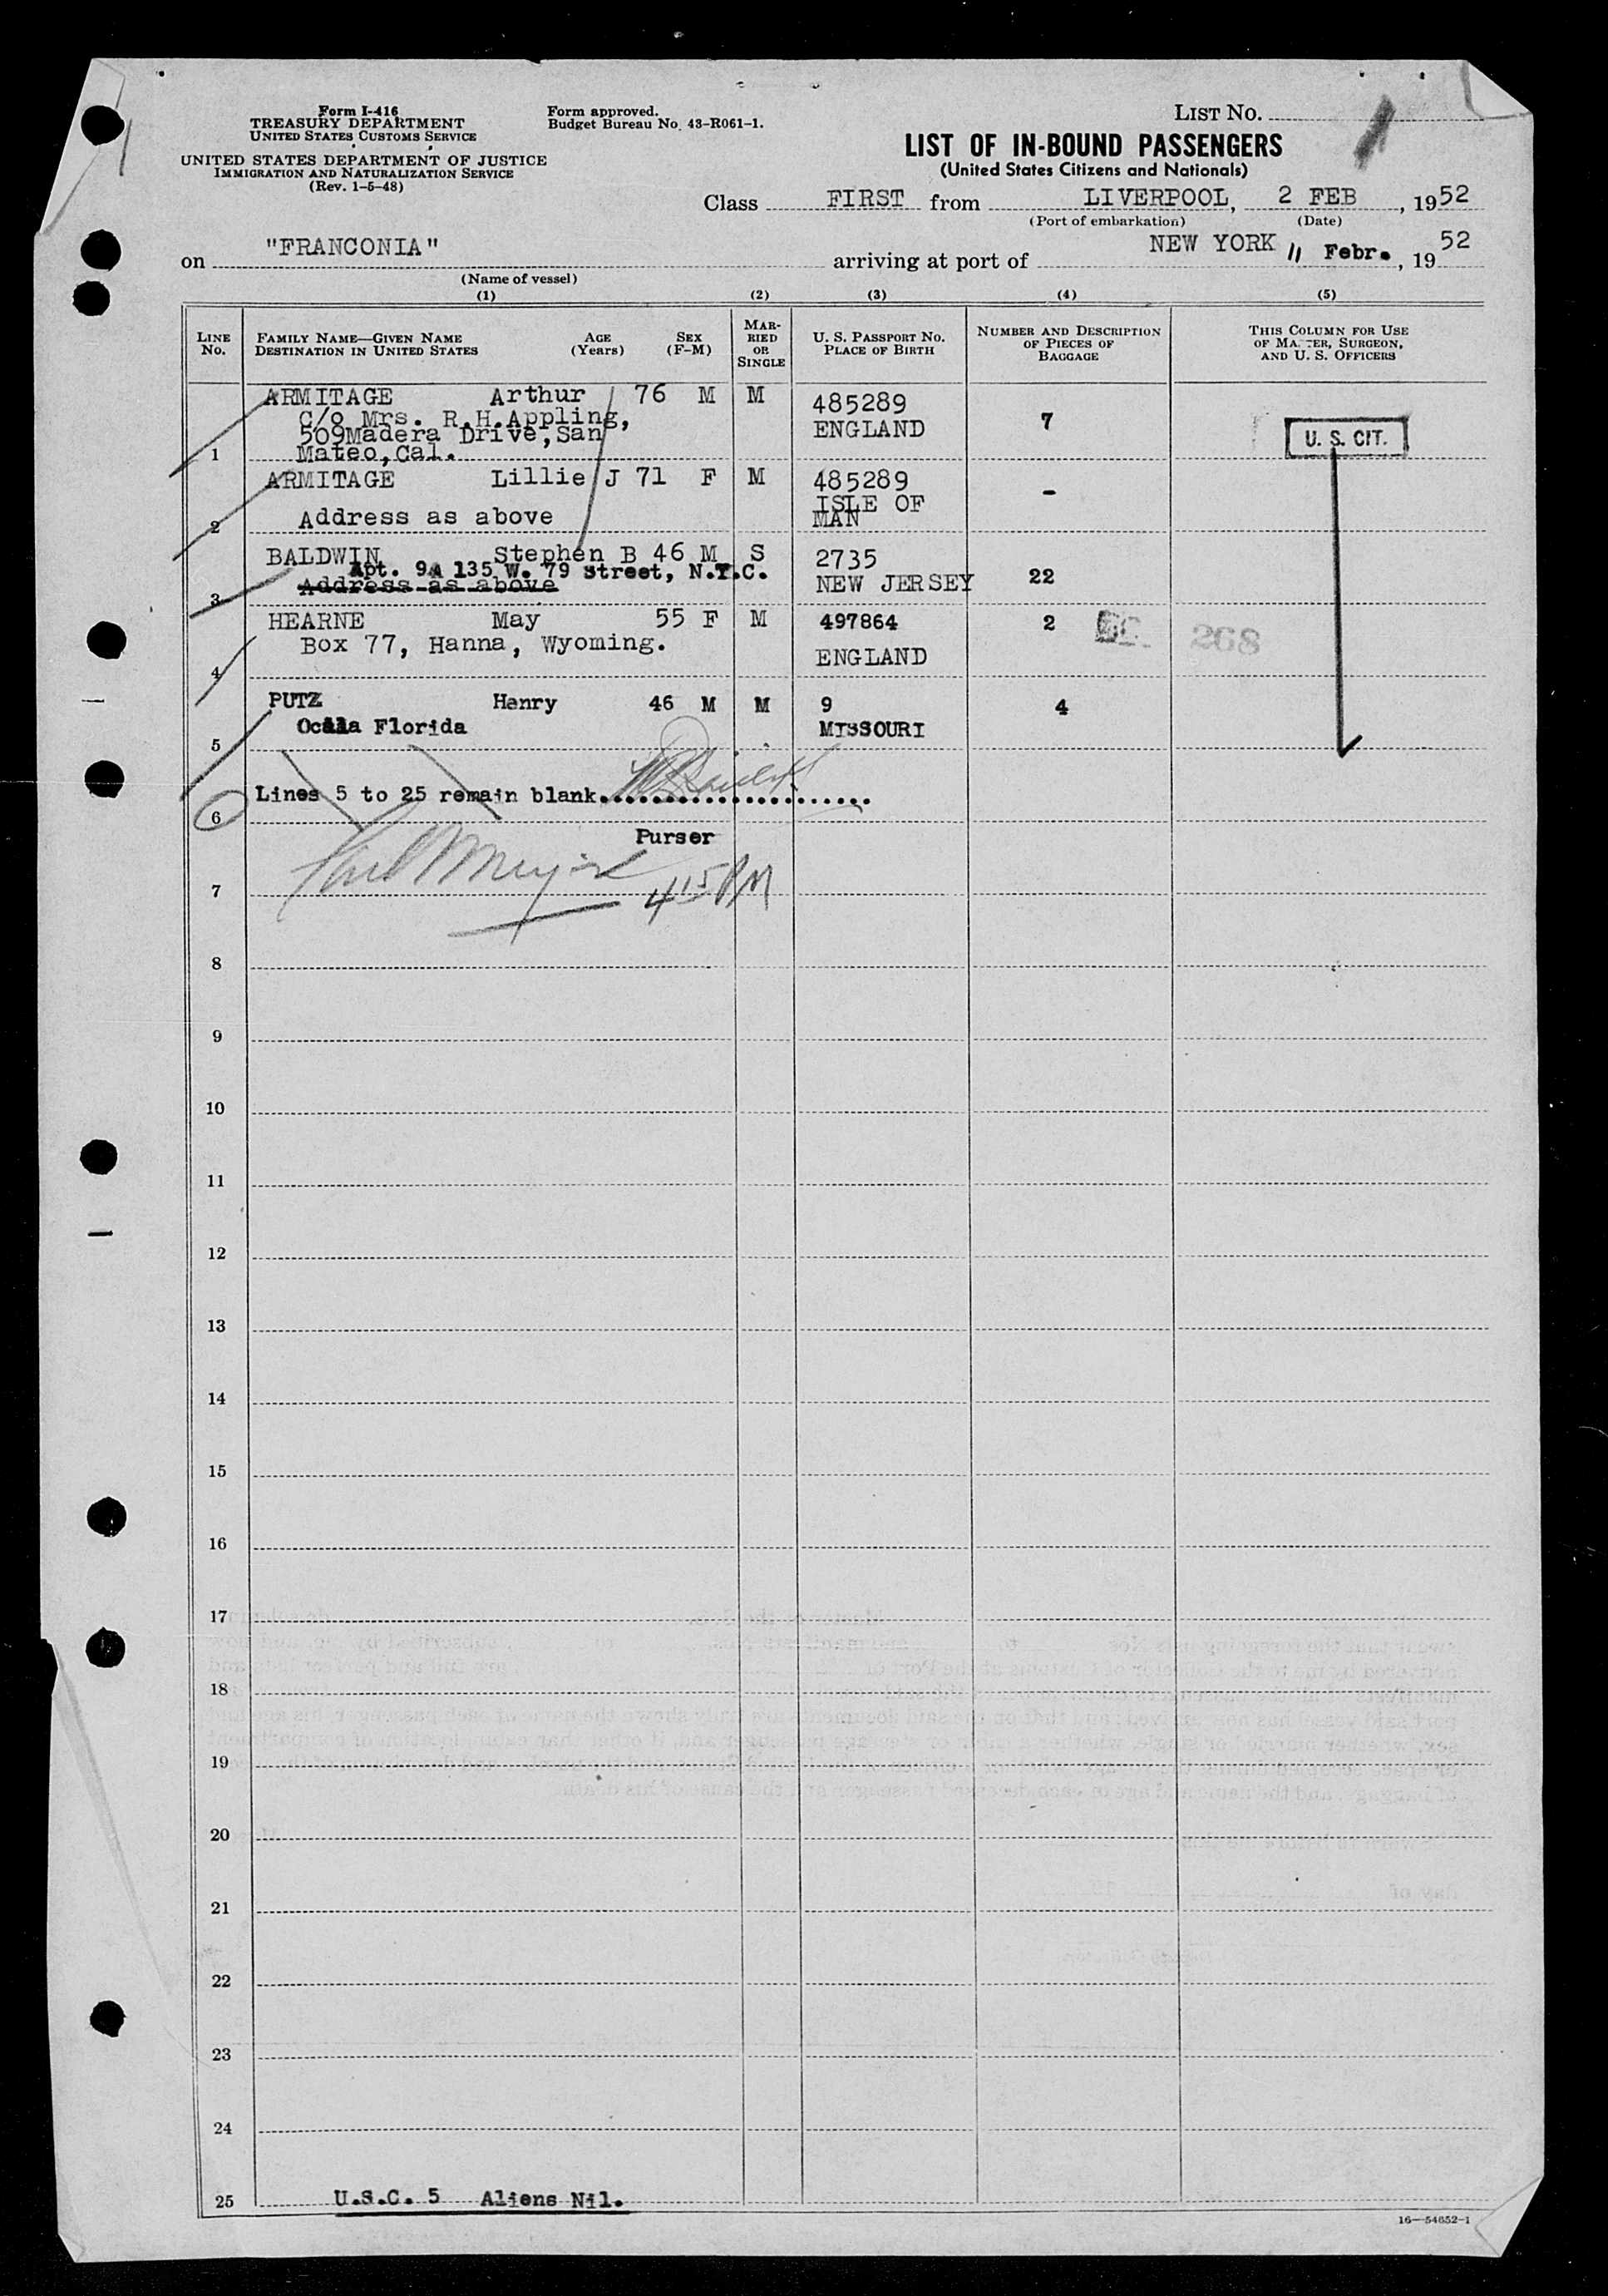 Form I-416
TREASURY DEPARTMENT
UNITED STATES CUSTOMS SERVICE
UNITED STATES DEPARTMENT OF JUSTICE
IMMIGRATION AND NATURALIZATION SERVICE
(Rev. 1-5-48)
Form approved.
Budget Bureau No. 43-R061-1.
LIST NO.
1
LIST OF IN-BOUND PASSENGERS
(United States Citizens and Nationals)
Class FIRST from LIVERPOOL, 2 FEB, 1952
(Port of embarkation) (Date)
on "FRANCONIA" arriving at port of NEW YORK 11 Febr., 1952
(Name of vessel)
(1) (2) (3) (4) (5)
LINE NO.
FAMILY NAME—GIVEN NAME
DESTINATION IN UNITED STATES
AGE (Years)
SEX (F-M)
MARRIED OR SINGLE
U. S. PASSPORT NO.
PLACE OF BIRTH
NUMBER AND DESCRIPTION
OF PIECES OF
BAGGAGE
THIS COLUMN FOR USE
OF MASTER, SURGEON,
AND U. S. OFFICERS
ARMITAGE Arthur 76 M M 485289
C/o Mrs. R.H.Appling, ENGLAND 7
509Madera Drive,San U. S. CIT.
1 Mateo,Cal.
ARMITAGE Lillie J 71 F M 485289 -
ISLE OF
2 Address as above MAN
BALDWIN Stephen B 46 M S 2735
Apt. 9A 135 W. 79 Street, N.Y.C.
3 Address as above NEW JERSEY 22
HEARNE May 55 F M 497864 2 268
Box 77, Hanna, Wyoming. ENGLAND
4
PUTZ Henry 46 M M 9 4
Ocala Florida MISSOURI
5
Lines 5 to 25 remain blank
6
Purser
7 415 PM
8
9
10
11
12
13
14
15
16
17
18
19
20
21
22
23
24
25 U.S.C. 5 Aliens Nil.
16—54652-1